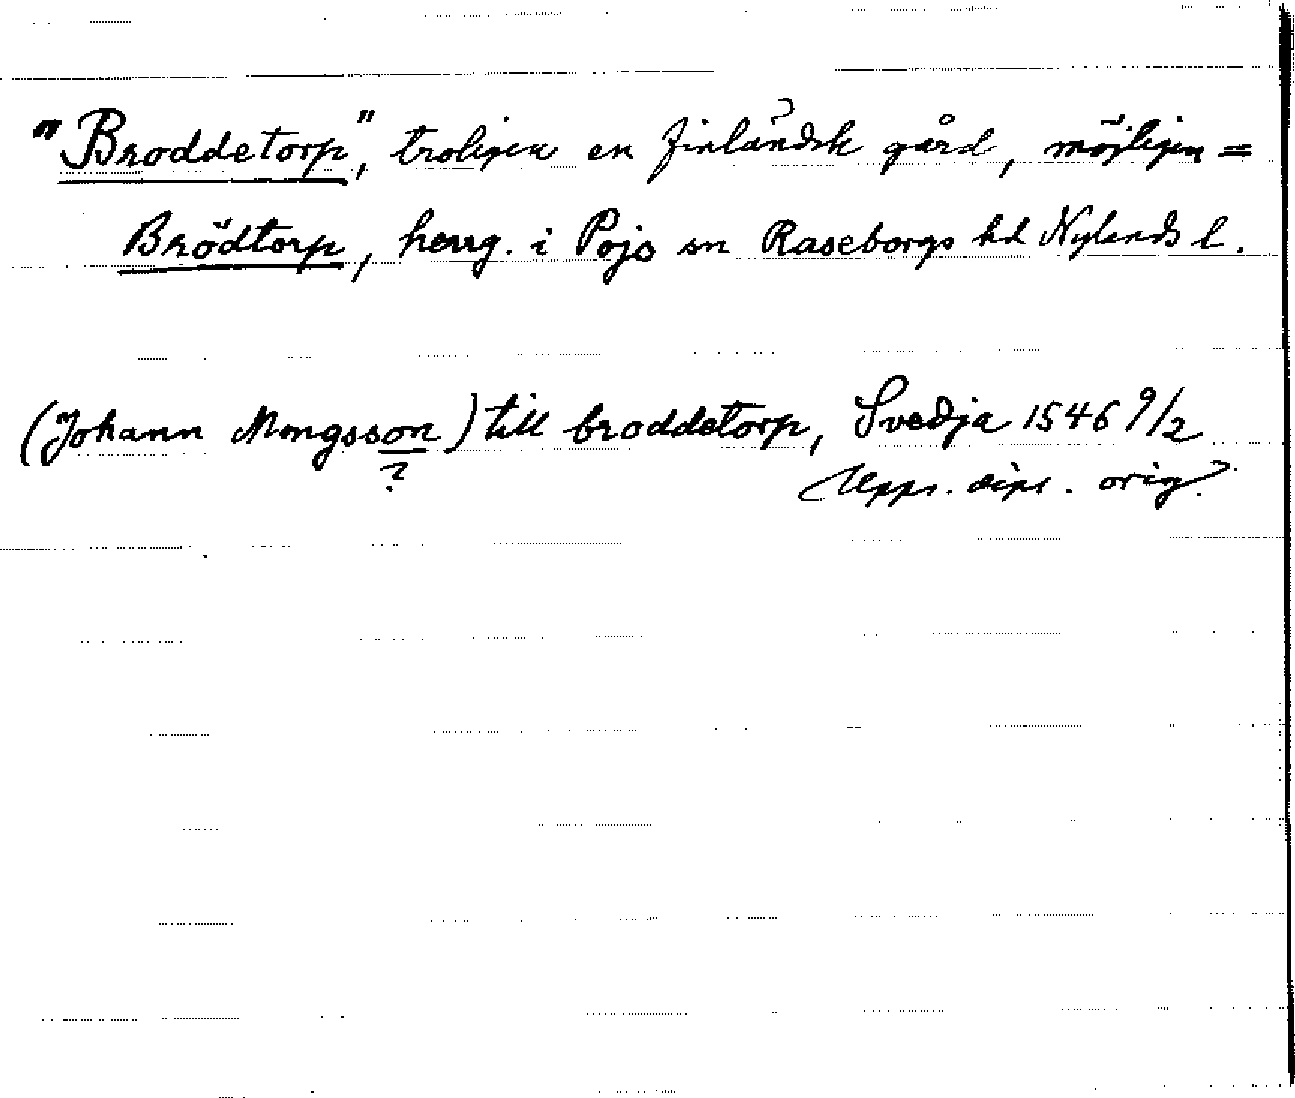 "Broddetorp", troligen en finländsk gård, möjligen =
Brödtorp, herrg. i Pojo sn Raseborgs hd Nylands l.
(Johann Mongsson) till broddetorp, Svedja 1546 9/2
?
Upps. dipl. orig.